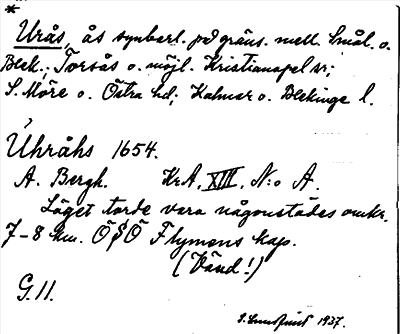 *
Urås, ås synbarl. på gräns. mell. Smål. o.
Blek.; Torsås o. möjl. Kristianopel snr;
S. Möre o. Östra hd; Kalmar o. Blekinge l.
Uhråhs 1654.
A. Bergh. KrA, XIII, N:o A.
Läget torde vara någonstädes omkr.
7-8 km. ÖSÖ Flymens kap.
(Vänd!)
G. 11.
1937.